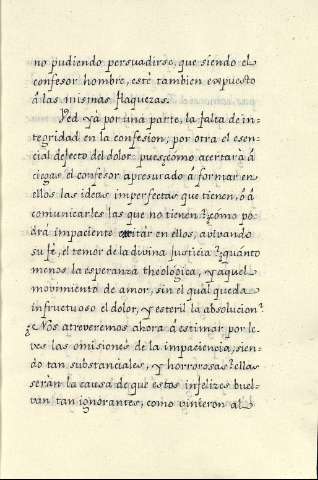 no pudiendo persuadirse, que siendo el
confesor hombre, esté tambien expuesto
á las mismas flaquezas.
Ved yà por una parte, la falta de in=
tegridad en la confesion, por otra el esen=
cial defecto del dolor: pues¿como acertarà á
ciegas el confesor apresurado á formar en
ellos las ideas imperfectas que tienen, ó á
comunicarles las que no tienen? ¿como po=
drá impaciente exitár en ellos, avivando
su fé, el temor de la divina Justicia? ¿quánto
menos la esperanza theológica, y aquel
movimiento de amor, sin el qual queda
infructuoso el dolor, y esteril la absolucion?
¿Nos atreveremos ahora á estimar por le=
ves las omisiones de la impaciencia, sien=
do tan substanciales, y horrorosas? ellas
seràn la causa de que estos infelizes buel=
van tan ignorantes, como vinieron al